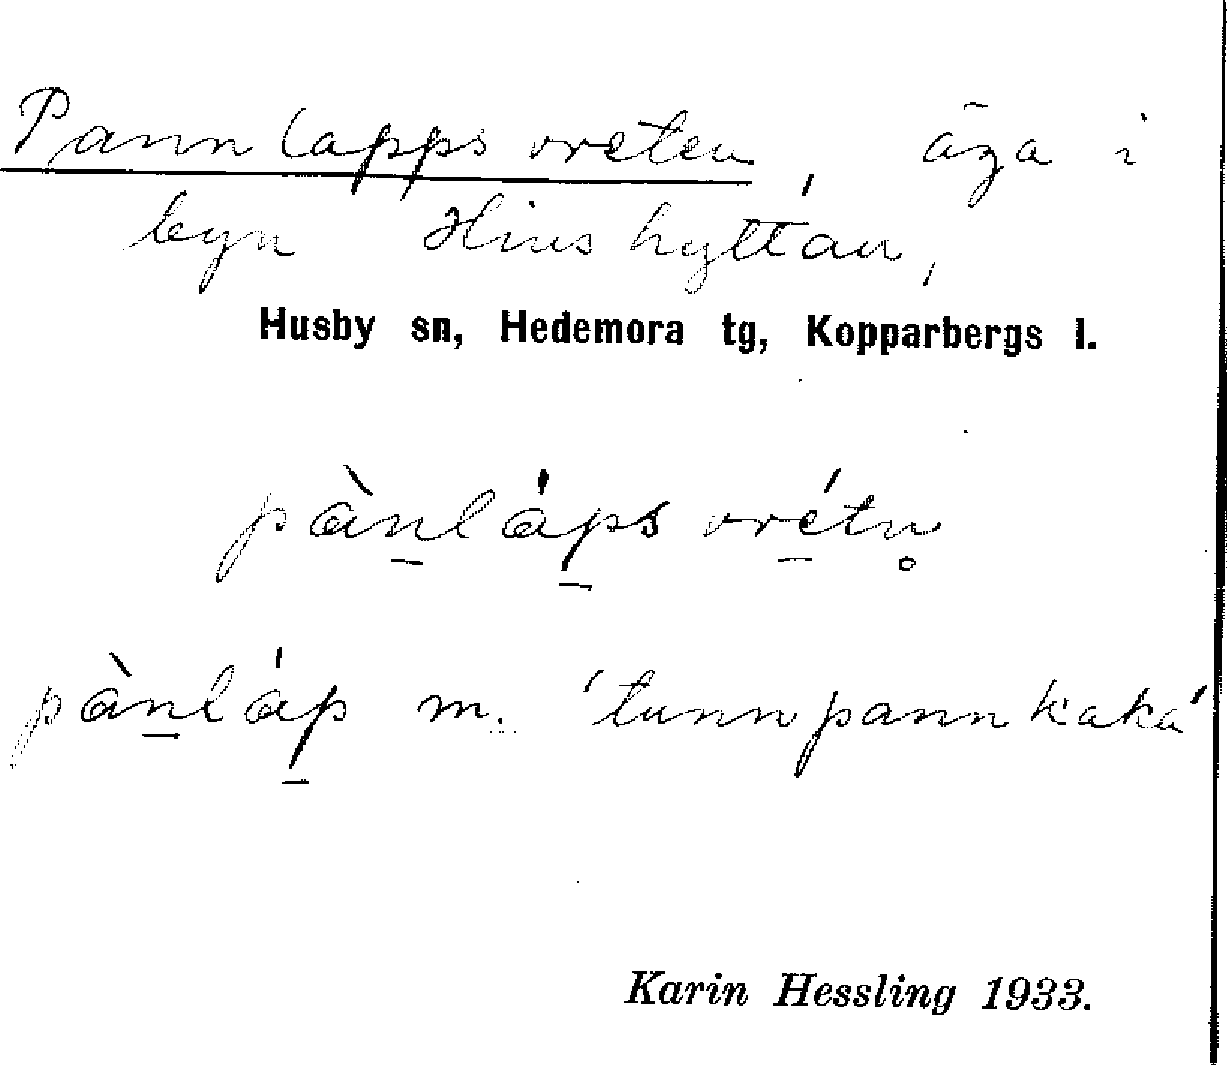 Pannlappsvreten, äga i
byn Hinshyttan,
Husby sn, Hedemora tg, Kopparbergs l.
pàn̠láp̠s vré̠tn̥
pàn̠láp̠ m. 'tunnpannkaka'
Karin Hessling 1933.